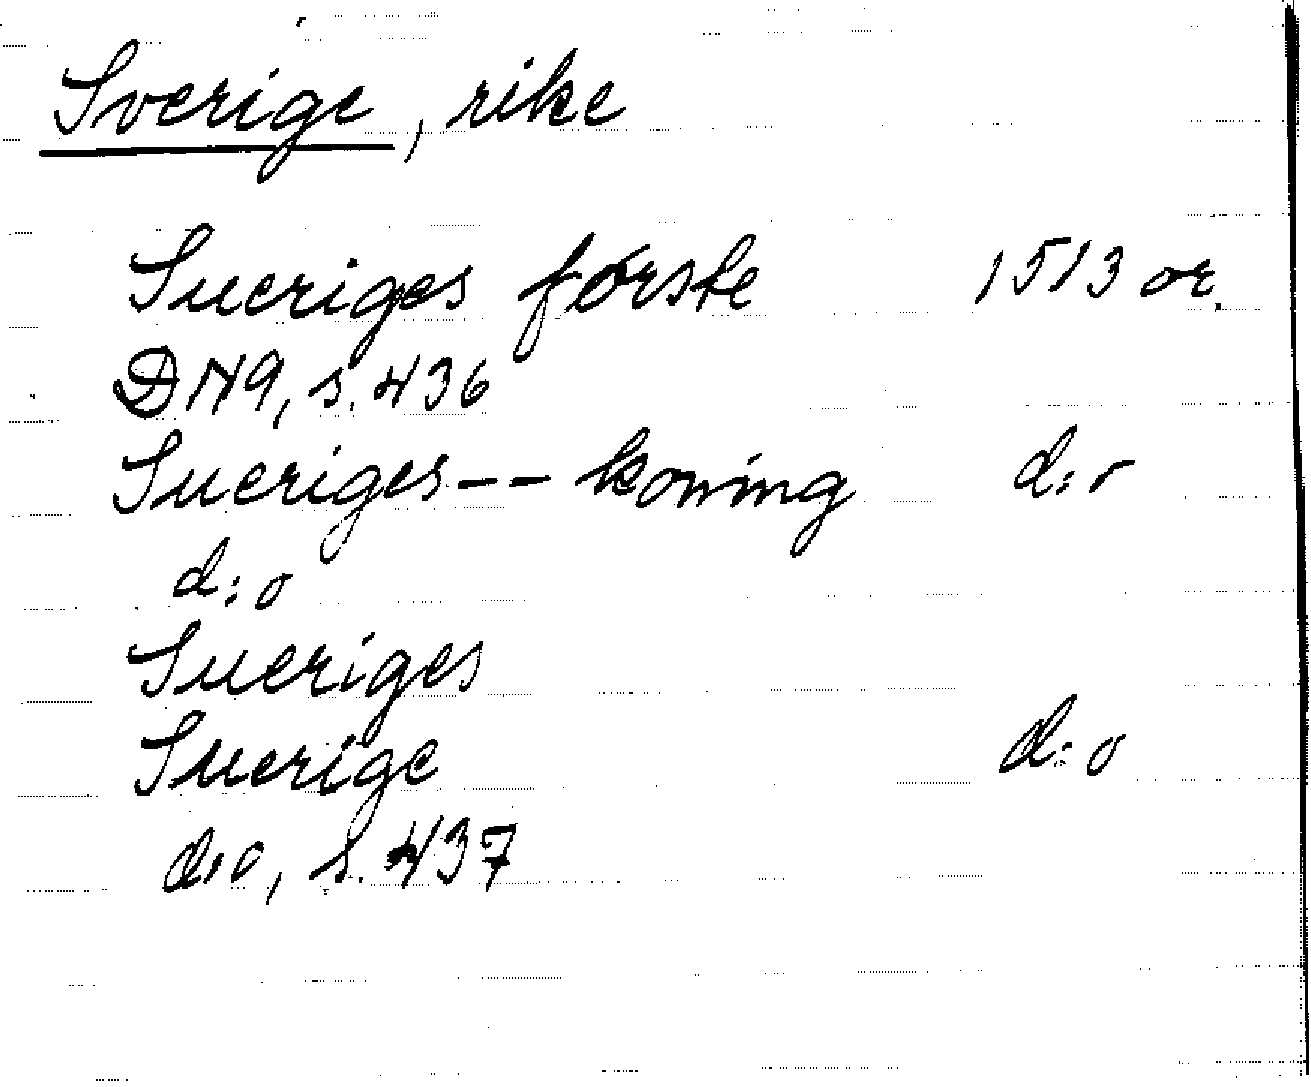 Sverige, rike
Sueriges førske 1513 or.
DN9, s. 436
Sueriges -- koning d:o
d:o
Sueriges
Suerige d:o
d:o, s. 437